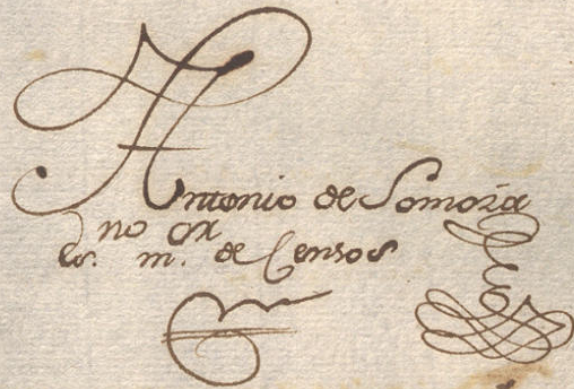 Antonio de Somoza
es.no m.or de Censos